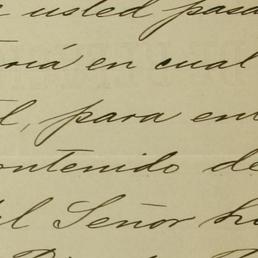 usted pasa
ria en cual
l, para en
ontenido de
el Señor